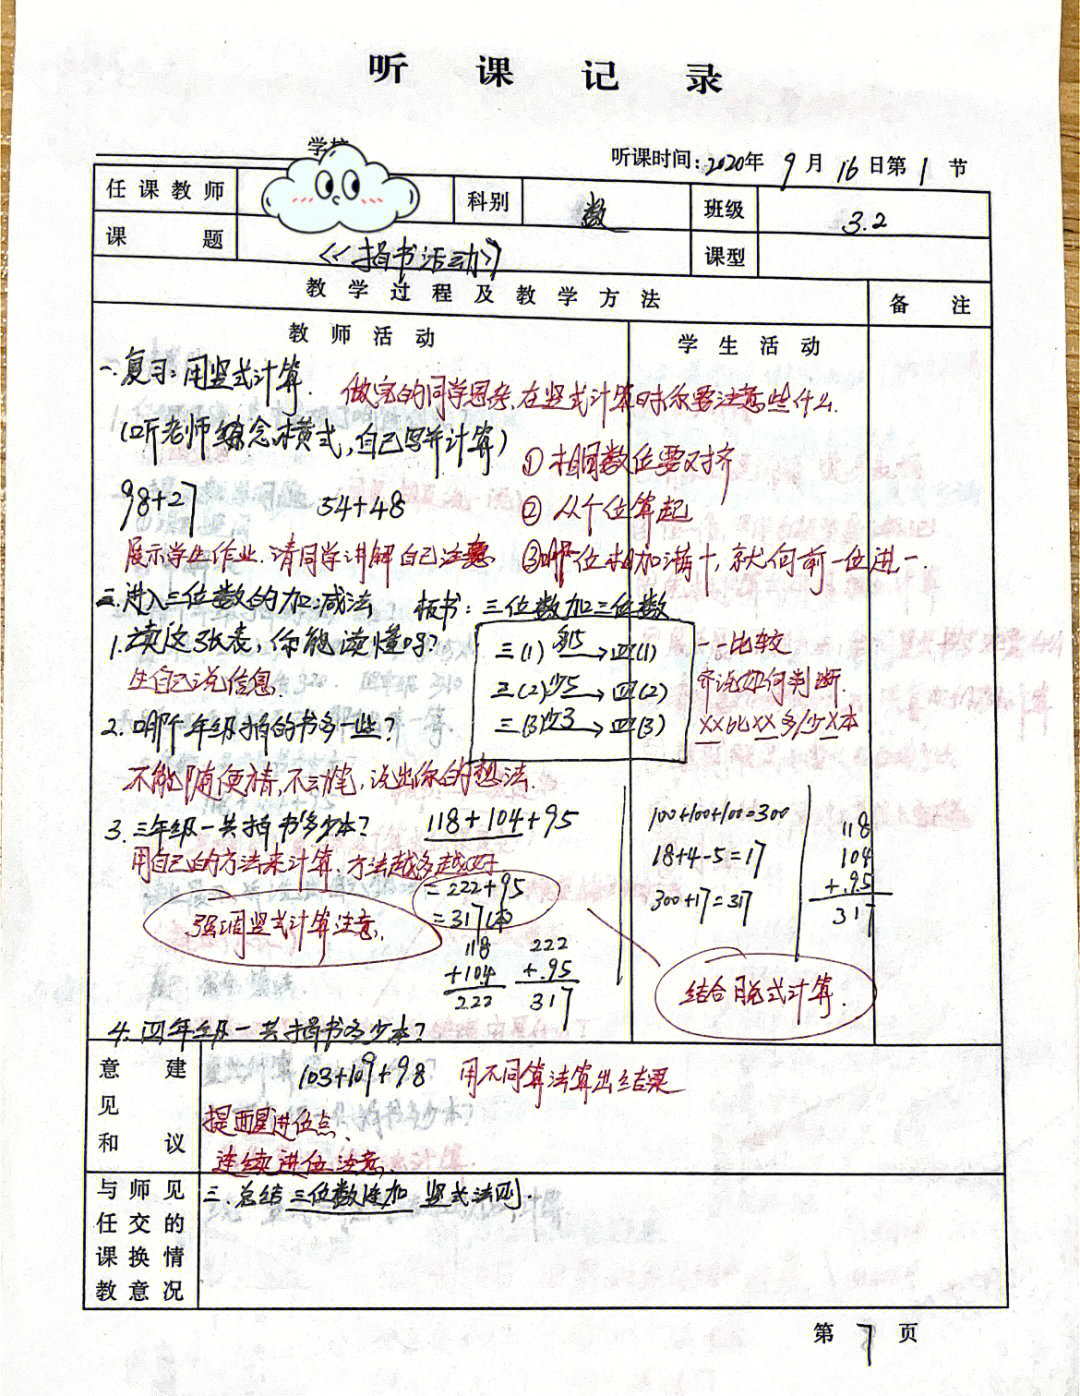 听课记录
学校
听课时间:2020年9月16日第1节
任课教师 科别 数 班级 3.2
课题 《捐书活动》 课型
教学过程及教学方法 备注
教师活动 学生活动
一.复习:用竖式计算. 做完的同学思考,在竖式计算时你要注意些什么.
(听老师念横式,自己写并计算)
①相同数位要对齐
98+27 54+48 ②从个位算起
展示学生作业.请同学讲解自己注意 ③哪一位相加满十,就向前一位进一.
二.进入三位数的加减法 板书:三位数加三位数
1.读这张表,你能读懂吗? 三(1)多15→四(1) 一一比较
生自己说信息. 三(2)少5→四(2) 齐说如何判断.
2.哪个年级捐的书多一些? 三(3)少3→四(3) XX比XX多/少X本
不能随便猜,不动笔,说出你的想法.
3.三年级一共捐书多少本? 118+104+95 100+100+100=300 118
用自己的方法来计算,方法越多越好 18+4-5=17 104
=222+95 300+17=317 +.95
强调竖式计算注意. =317(本) 317
118 222
+104 +.95 结合脱式计算.
222 317
4.四年级一共捐书多少本?
意见和建议 103+109+98 用不同算法算出结果
提醒进位点、
连续进位注意.
与任课教师交换意见的情况 三.总结三位数连加 竖式法则.
第7页